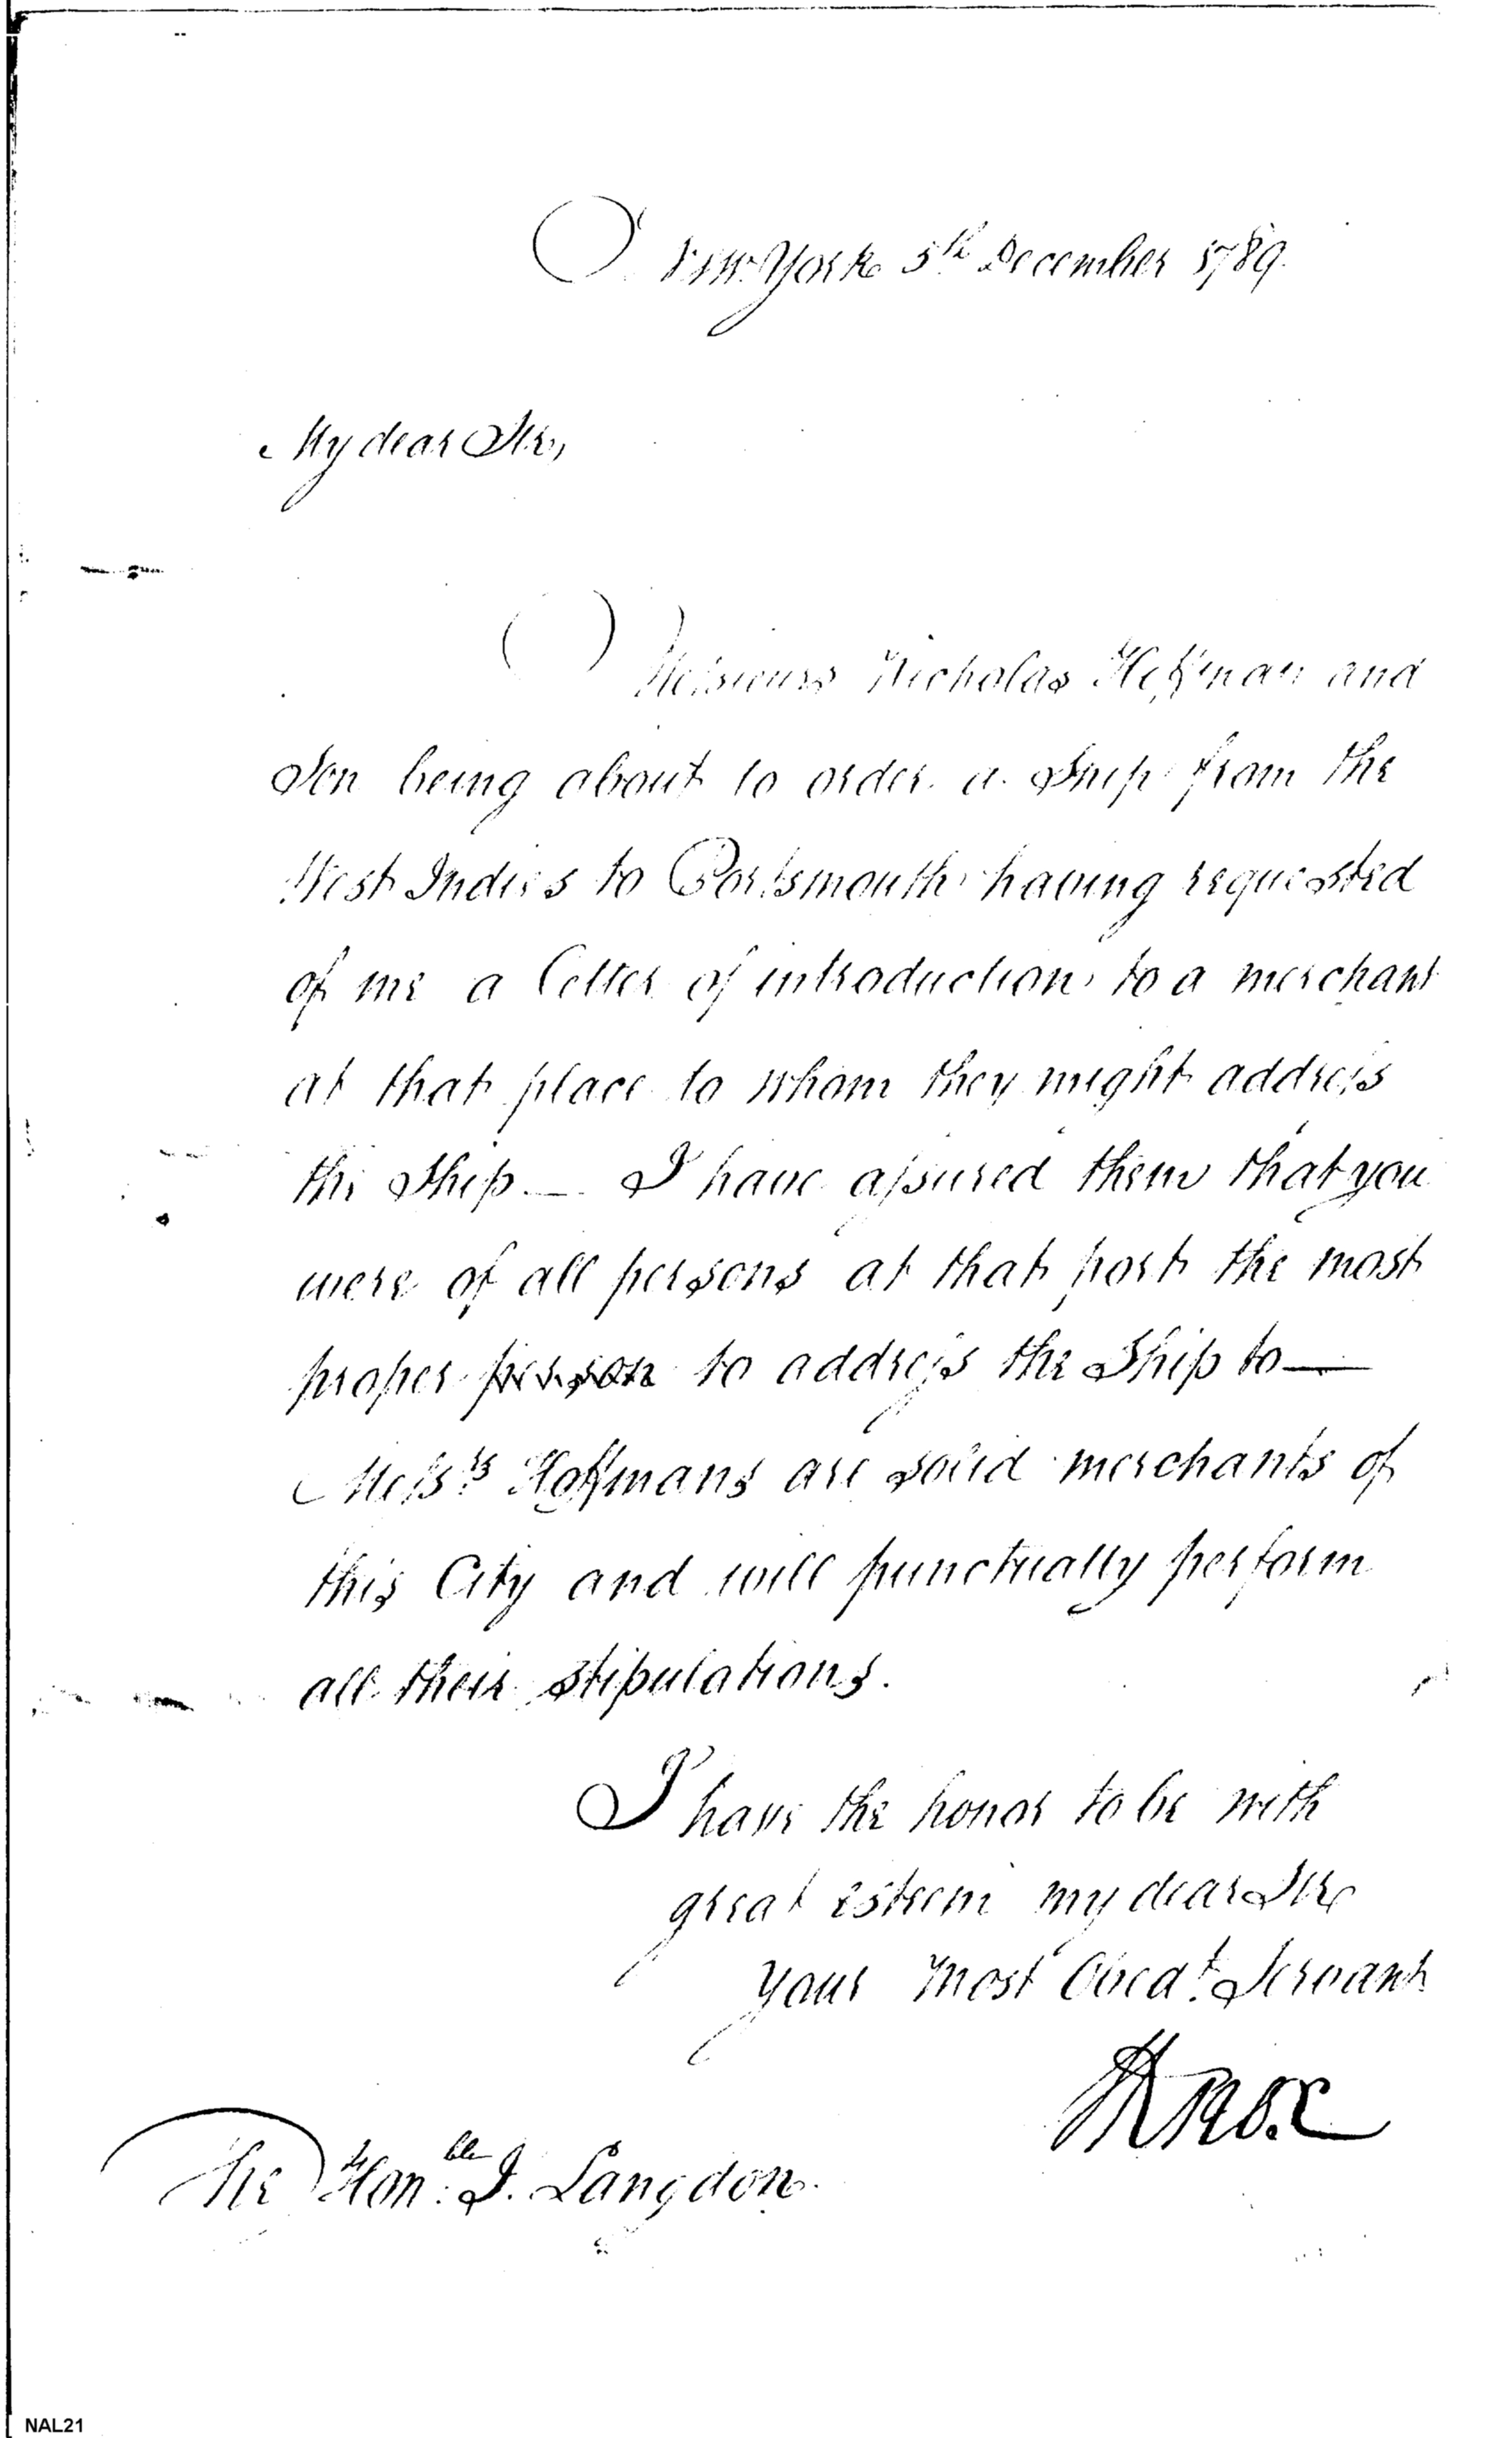 New York 5th December 1789.
My dear Sir,
Messieurs Nicholas Hoffman and
Son being about to order a Ship from the
West Indies to Portsmouth having requested
of me a letter of introduction to a merchant
at that place to whom they might address
the Ship — I have assured them that you
were of all persons at that port the most
proper person to address the Ship to —
Messrs Hoffmans are solid merchants of
this City and will punctually perform
all their stipulations.
I have the honor to be with
great esteem my dear Sir
your most Obedt. Servant
HKnox
The Honble: J. Langdon.
NAL21